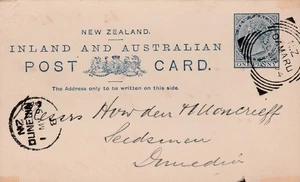 NEW ZEALAND.
INLAND AND AUSTRALIAN
POST CARD.
The Address only to be written on this side.
ONE PENNY
OAMARU
N.Z
DUNEDIN
Messrs Howden & Moncrieff
Seedsmen
Dunedin